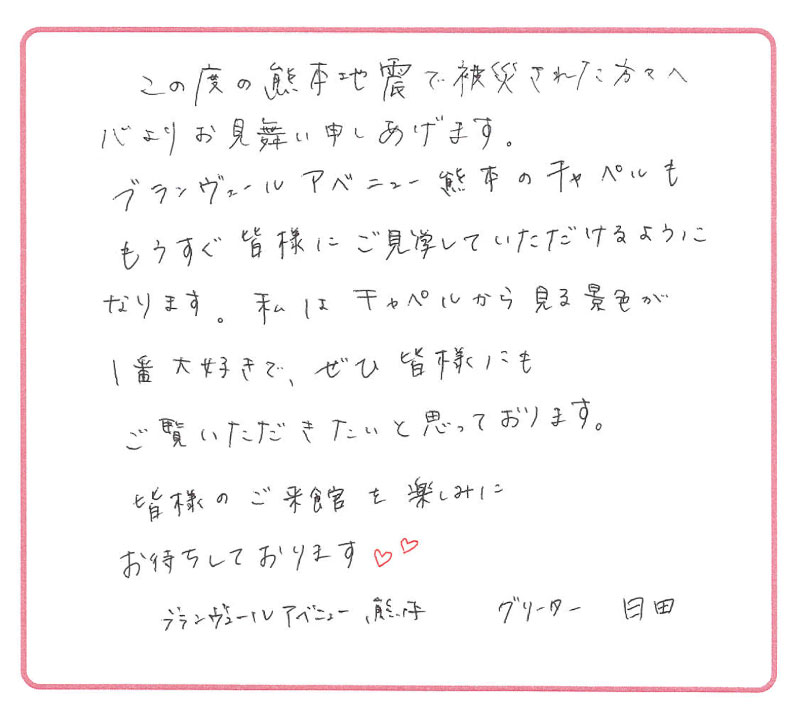 この度の熊本地震で被災された方々へ
心よりお見舞い申しあげます。
ブランヴェールアベニュー熊本のチャペルも
もうすぐ皆様にご見学していただけるように
なります。私はチャペルから見る景色が
1番大好きで、ぜひ皆様にも
ご覧いただきたいと思っております。
皆様のご来館を楽しみに
お待ちしております
ブランヴェールアベニュー熊本 グリーター 日田